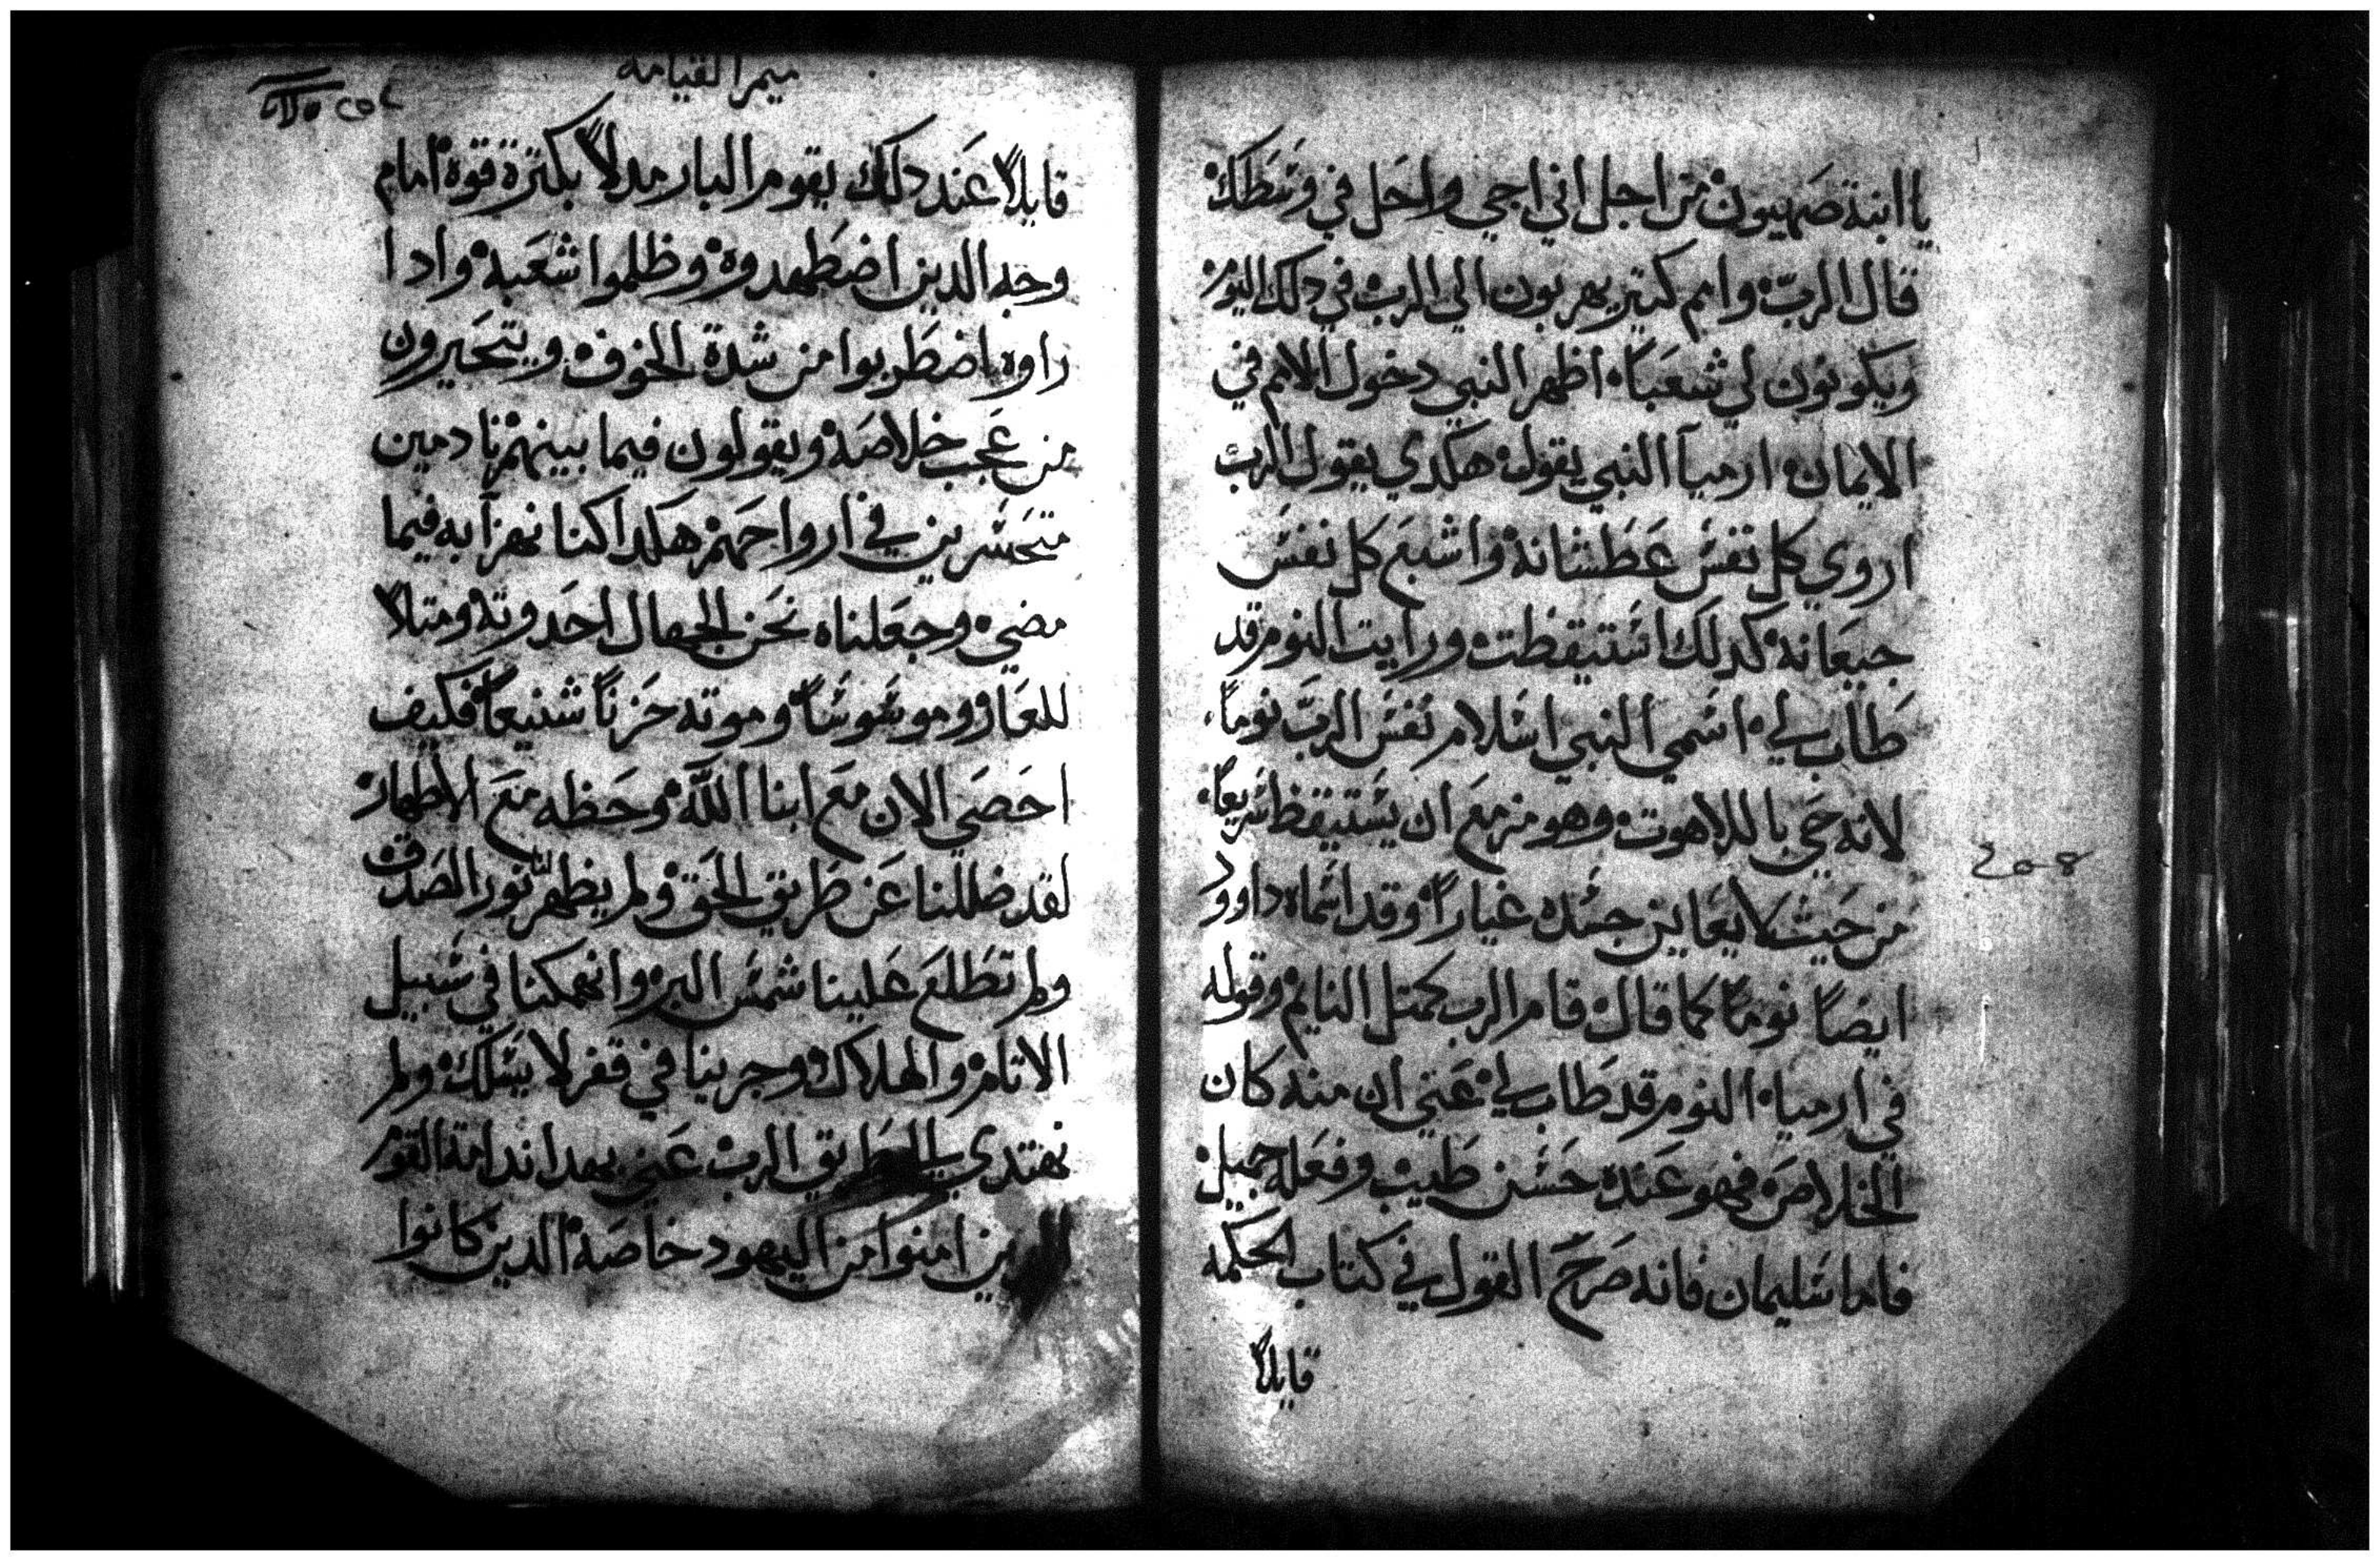 يا ابنة صهيون من اجل اني اجي واحل في وسطك
قال الرب وامم كتير يهربون الي الرب في دلك اليوم
ويكونون لي شعباً اظهر النبي دخول الامم في
الايمان ارميا النبي يقول هكدي يقول الرب
اروي كل نفس عطشانة واشبع كل نفس
جيعانه كدلك استيقظت ورايت النوم قد
طاب لي اسمي النبي اسلام نفس الرب نوماً
لانه حي باللاهوت وهو مزمع ان يستيقظ سريعاً
من حيت لا يعاين جسده غياراً وقد اسماه داوود
ايضاً نوماً كما قال قام الرب كمتل النايم وقوله
في ارميا النوم قد طاب لي عني ان منه كان
الخلاص فهو عنده حسن طيب وفعله جميل
فاما سليمان فانه صرح القول في كتاب الحكمه
قايلاً
ميمر القيامه
قايلاً عند دلك يقوم البار مدلاً بكترة قوة امام
وجه الدين اضطهدوه وظلموا شعبه وادا
راوه اضطربوا من شدة الخوف ويتحيرون
من عجب خلاصه ويقولون فيما بينهم نادمين
متحسرين في ارواحهم هكدا كنا نهزآ به فيما
مضي وجعلناه نحن الجهال احدوته ومتلاً
للعار وموسوساً وموته حزناً شنيعاً فكيف
احصي الان مع ابنا الله وحظه مع الاطهار
لقد ضللنا عن طريق الحق ولم يظهر لنا نور الصدق
ولم تطلع علينا شمس البر وانهمكنا في سبيل
الاتام والهلاك وجرينا في قفر لا يسلك ولم
نهتدي طريق الرب عني بهدا ندامة القوم
الدين امنوا من اليهود خاصه الدين كانوا